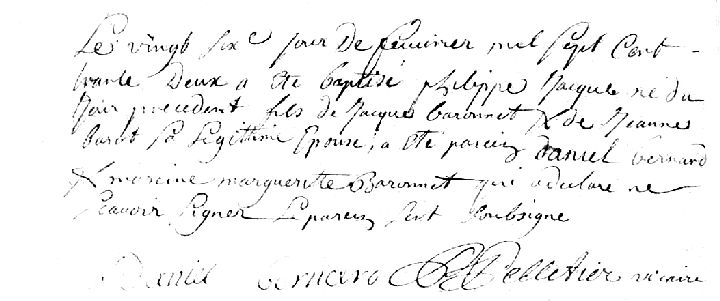 Le vingt six^e jour de feuvrier mil sept cent
trante Deux a ete baptisé philippe Jacque né du
jour precedent fils de Jacque baronnet & de Jeanne
barat sa Legittime Epouse, a ete parein daniel bernard
& mareine margueritte Baronnet qui a declaré ne
scavoir signer Le parein s'est soubsigné
Daniel bernard Pelletier vicaire